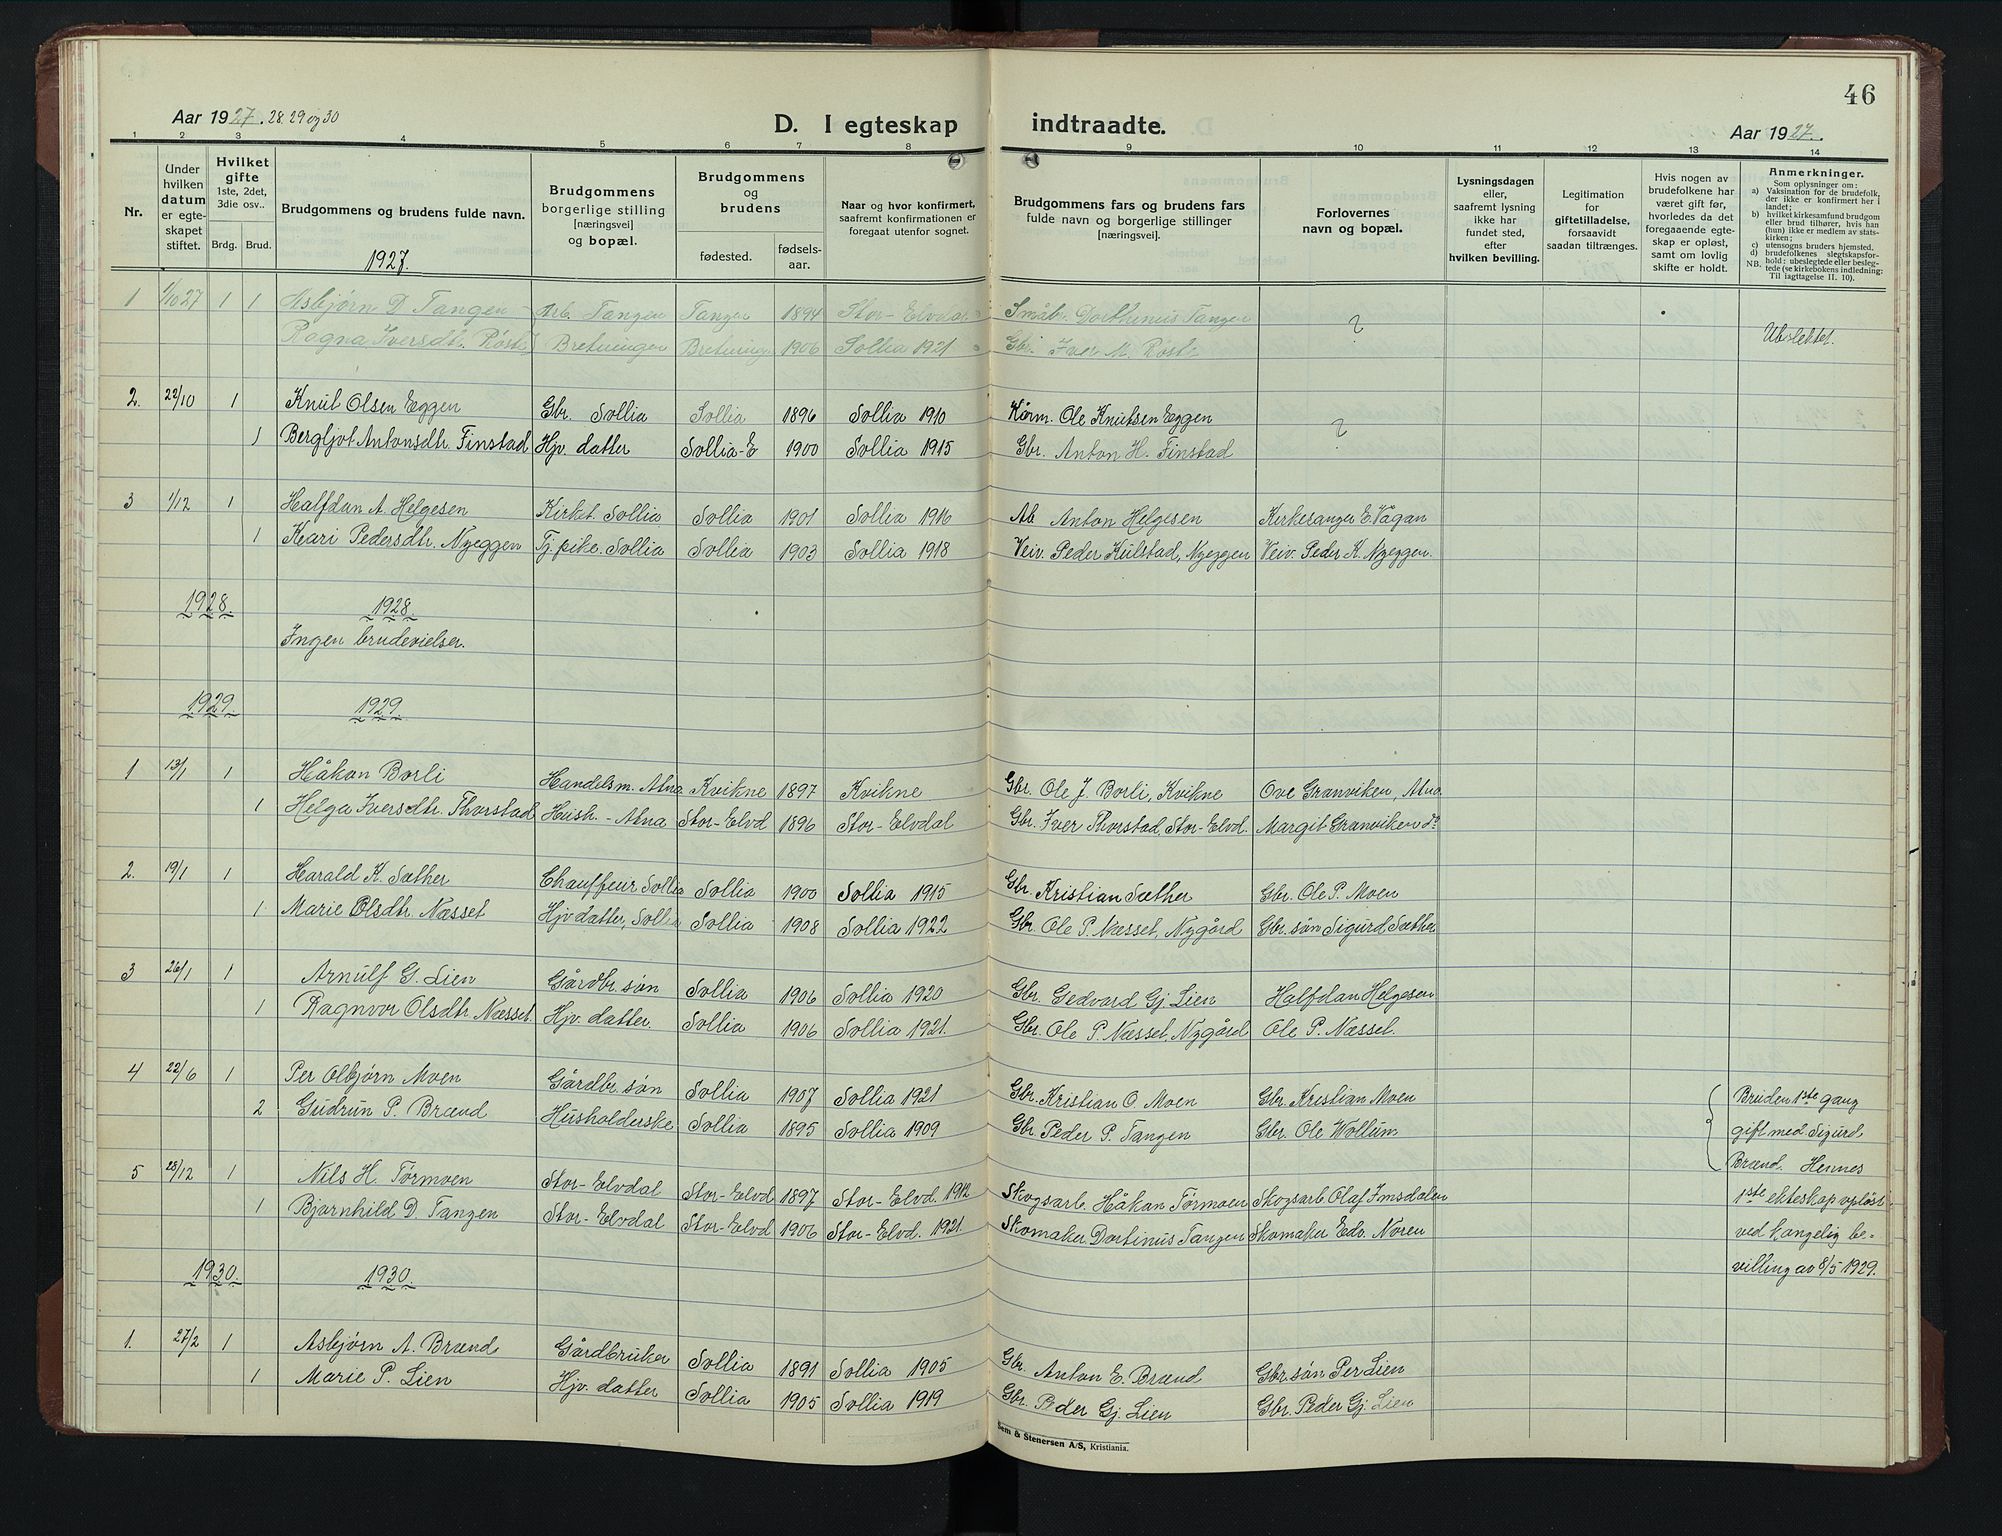 46
Aar 1927. 28. 29 og 30
D. I egteskap indtraadte.
Aar 1927.
1 2 3 4 5 6 7 8 9 10 11 12 13 14
Nr.
Under hvilken datum er egteskapet stiftet.
Hvilket gifte 1ste, 2det, 3die osv..
Brdg. Brud.
Brudgommens og brudens fulde navn.
Brudgommens borgerlige stilling [næringsvei] og bopæl.
Brudgommens og brudens
fødested. fødsels-aar.
Naar og hvor konfirmert, saafremt konfirmationen er foregaat utenfor sognet.
Brudgommens fars og brudens fars fulde navn og borgerlige stillinger [næringsvei].
Forlovernes navn og bopæl.
Lysningsdagen eller, saafremt lysning ikke har fundet sted, efter hvilken bevilling.
Legitimation for giftetilladelse, forsaavidt saadan tiltrænges.
Hvis nogen av brudefolkene har været gift før, hvorledes da det foregaaende egteskap er opløst, samt om lovlig skifte er holdt.
Anmerkninger.
Som oplysninger om:
a) Vaksination for de brudefolk, der ikke er konfirmert her i landet;
b) hvilket kirkesamfund brudgom eller brud tilhører, hvis han (hun) ikke er medlem av statskirken;
c) utensogns bruders hjemsted.
d) brudefolkenes slegtskapsforhold: ubeslegtede eller beslegtede (se kirkebokens indledning: Til iagttagelse II. 10).
NB.
1927.
1 1/10 27 1 1 Asbjørn D. Tangen Arb. Tangen Tangen 1894 Stor-Elvdal Småbr. Dorthinius Tangen ?
Ragna Iversdtr. Røst Bretningen Bretningen 1906 Sollia 1921 Gbr. Iver M. Røst Ubslektet.
2. 22/10 1 Knut Olsen Eggen Gbr. Sollia Sollia 1896 Sollia 1910 Kårm. Ole Knutsen Eggen
1 Bergljot Antonsdtr. Finstad Hjv. datter Sollia-E 1900 Sollia 1915 Gbr. Anton H. Finstad ?
3 1/12 1 Halfdan A. Helgesen Kirket. Sollia Sollia 1901 Sollia 1916 Ab Anton Helgesen Kirkesanger E. Vågan
1 Kari Pedersdtr. Nyeggen Tj. pike. Sollia Sollia 1903 Sollia 1918 Veiv. Peder Kulstad, Nyeggen Veiv. Peder K. Nyeggen.
1928. 1928.
Ingen brudevielser.
1929. 1929
1 13/1 1 Håkon Borli Handelsm. Atna Kvikne 1897 Kvikne Gbr. Ole J. Borli, Kvikne Ove Granviken, Atna
1 Helga Iversdtr. Thorstad Hush. - Atna Stor-Elvd 1896 Stor-Elvdal Gbr. Iver Thorstad, Stor-Elvd. Margit Granviken do
2. 19/1 1 Harald K. Sæther Chauffeur Sollia Sollia 1900 Sollia 1915 Gbr. Kristian Sæther Gbr. Ole P. Moen
1 Marie Olsdtr. Næsset Hjv datter, Sollia Sollia 1908 Sollia 1922 Gbr. Ole P. Næsset, Nygård Gbr. søn Sigurd Sæther
3 26/1 1 Arnulf G. Lien Gårdbr. søn Sollia 1906 Sollia 1920 Gbr. Gedvard Gj. Lien Halfdan Helgesen
1 Ragnvor Olsdtr. Næsset. Hjv. datter. Sollia 1906 Sollia 1921. Gbr. Ole P. Næsset, Nygård Ole P. Næsset.
4 22/6 1 Per Olbjørn Moen Gårdbr. søn Sollia 1907 Sollia 1921 Gbr. Kristian O. Moen Gbr. Kristian Moen Bruden 1ste gang
2 Gudrun P. Brænd Husholderske Sollia 1895 Sollia 1909 Gbr. Peder P. Tangen Gbr. Ole Wollum gift med Sigurd
Brænd. Hennes
5 28/12 1 Nils H. Tørmoen Stor-Elvdal Stor-Elvd 1897 Stor-Elvd. 1912 Skogsarb. Håkan Tørmoen Skogsarb Olaf Imsdalen 1ste ekteskap opløst
1 Bjørnhild D. Tangen Stor-Elvdal Stor-Elvd 1906 Stor-Elvd. 1921. Skomaker Dortinus Tangen Skomaker Edv. Noren ved kongelig be-
1930. 1930. villing av 8/5 1929.
1. 27/2 1 Asbjørn A. Brænd Gårdbruker Sollia 1891 Sollia 1905 Gbr. Anton E. Brænd Gbr. søn Per Lien
1 Marie P. Lien Hjv. datter Sollia 1905 Sollia 1919 Gbr. Peder Gj. Lien Gbr. Peder Gj. Lien
Sem & Stenersen A/S, Kristiania.